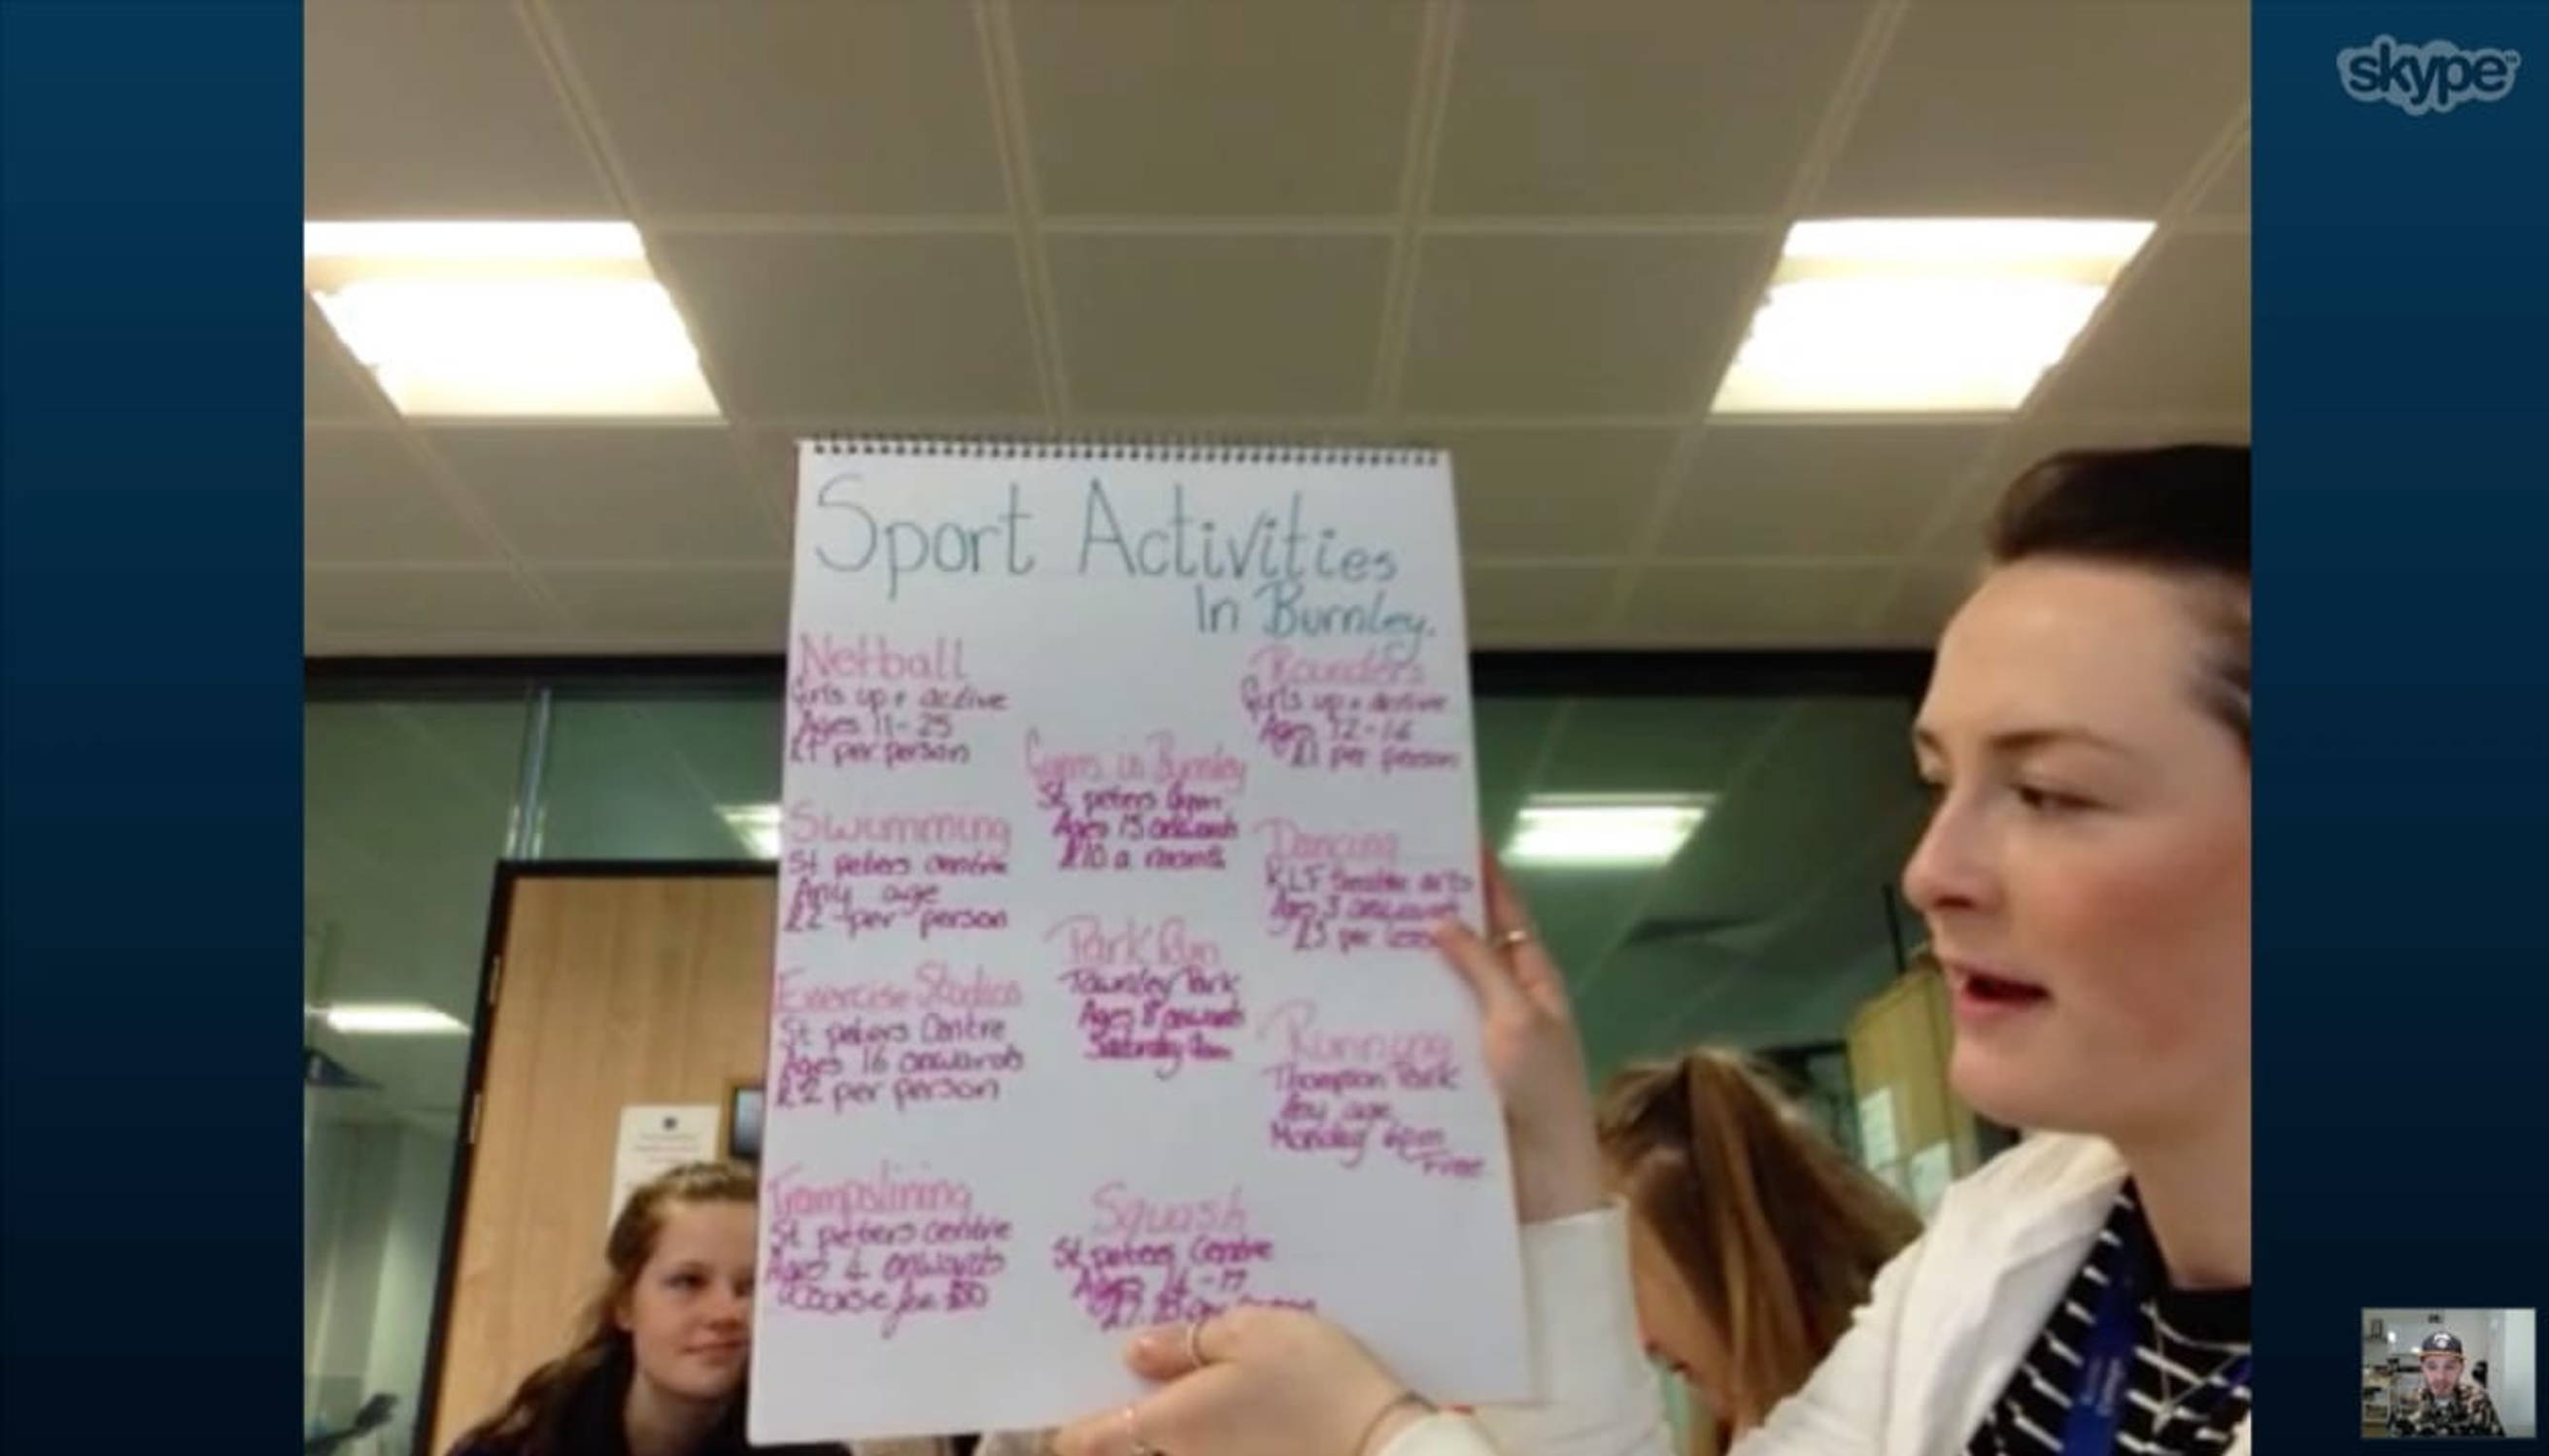 skype
Sport Activities
In Burnley.
Netball
Girls up + active
Ages 11-25
£1 per person
Swimming
St peters centre
Any age
£2 per person
Exercise Studios
St peters Centre
Ages 16 onwards
£2 per person
Trampolining
St peters centre
Ages 4 onwards
Gyms in Burnley
St peters Gym
Ages 15 onwards
£10 a month
Park Run
Townley Park
Ages 8 onwards
Saturday 9am
Squash
St peters Centre
Rounders
Girls up + active
Ages 12-16
£1 per person
Dancing
Ages 3 onwards
Running
Thompson Park
Any age
Monday 6pm
Free